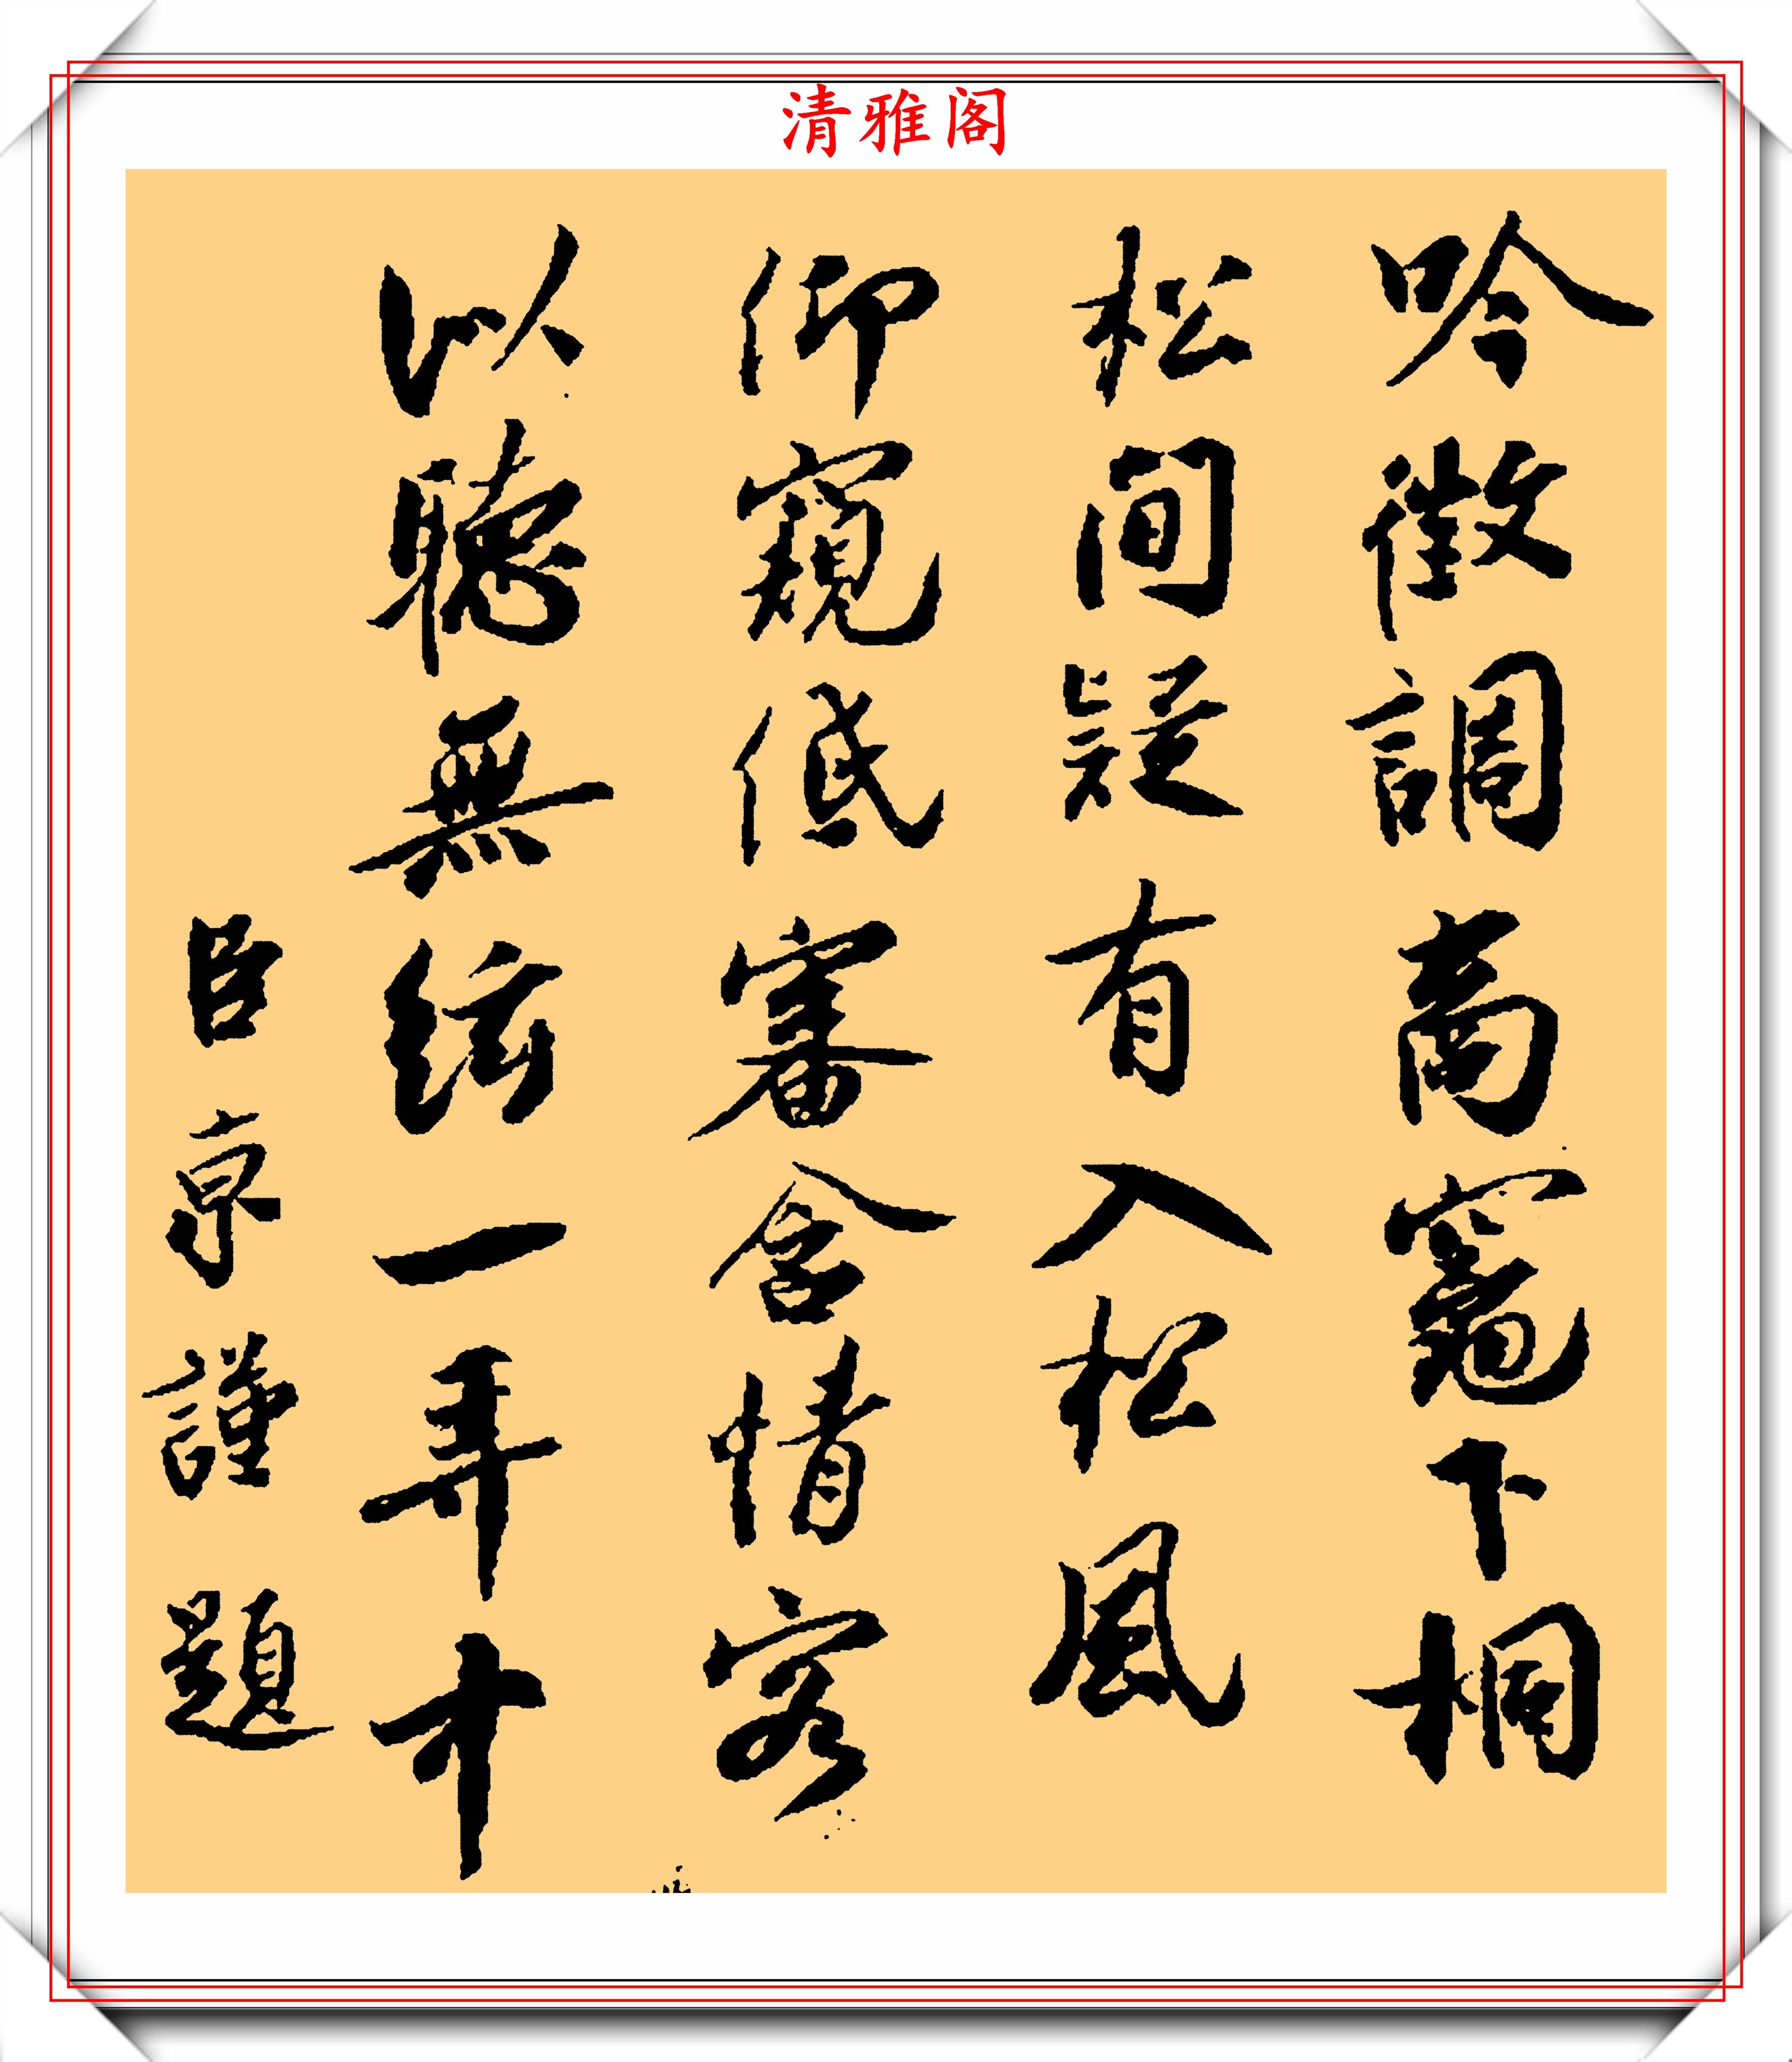 清雅阁
吟徵調商竈下桐
松间疑有入松風
仰窺低審含情客
以聽無絃一弄中
臣京謹題